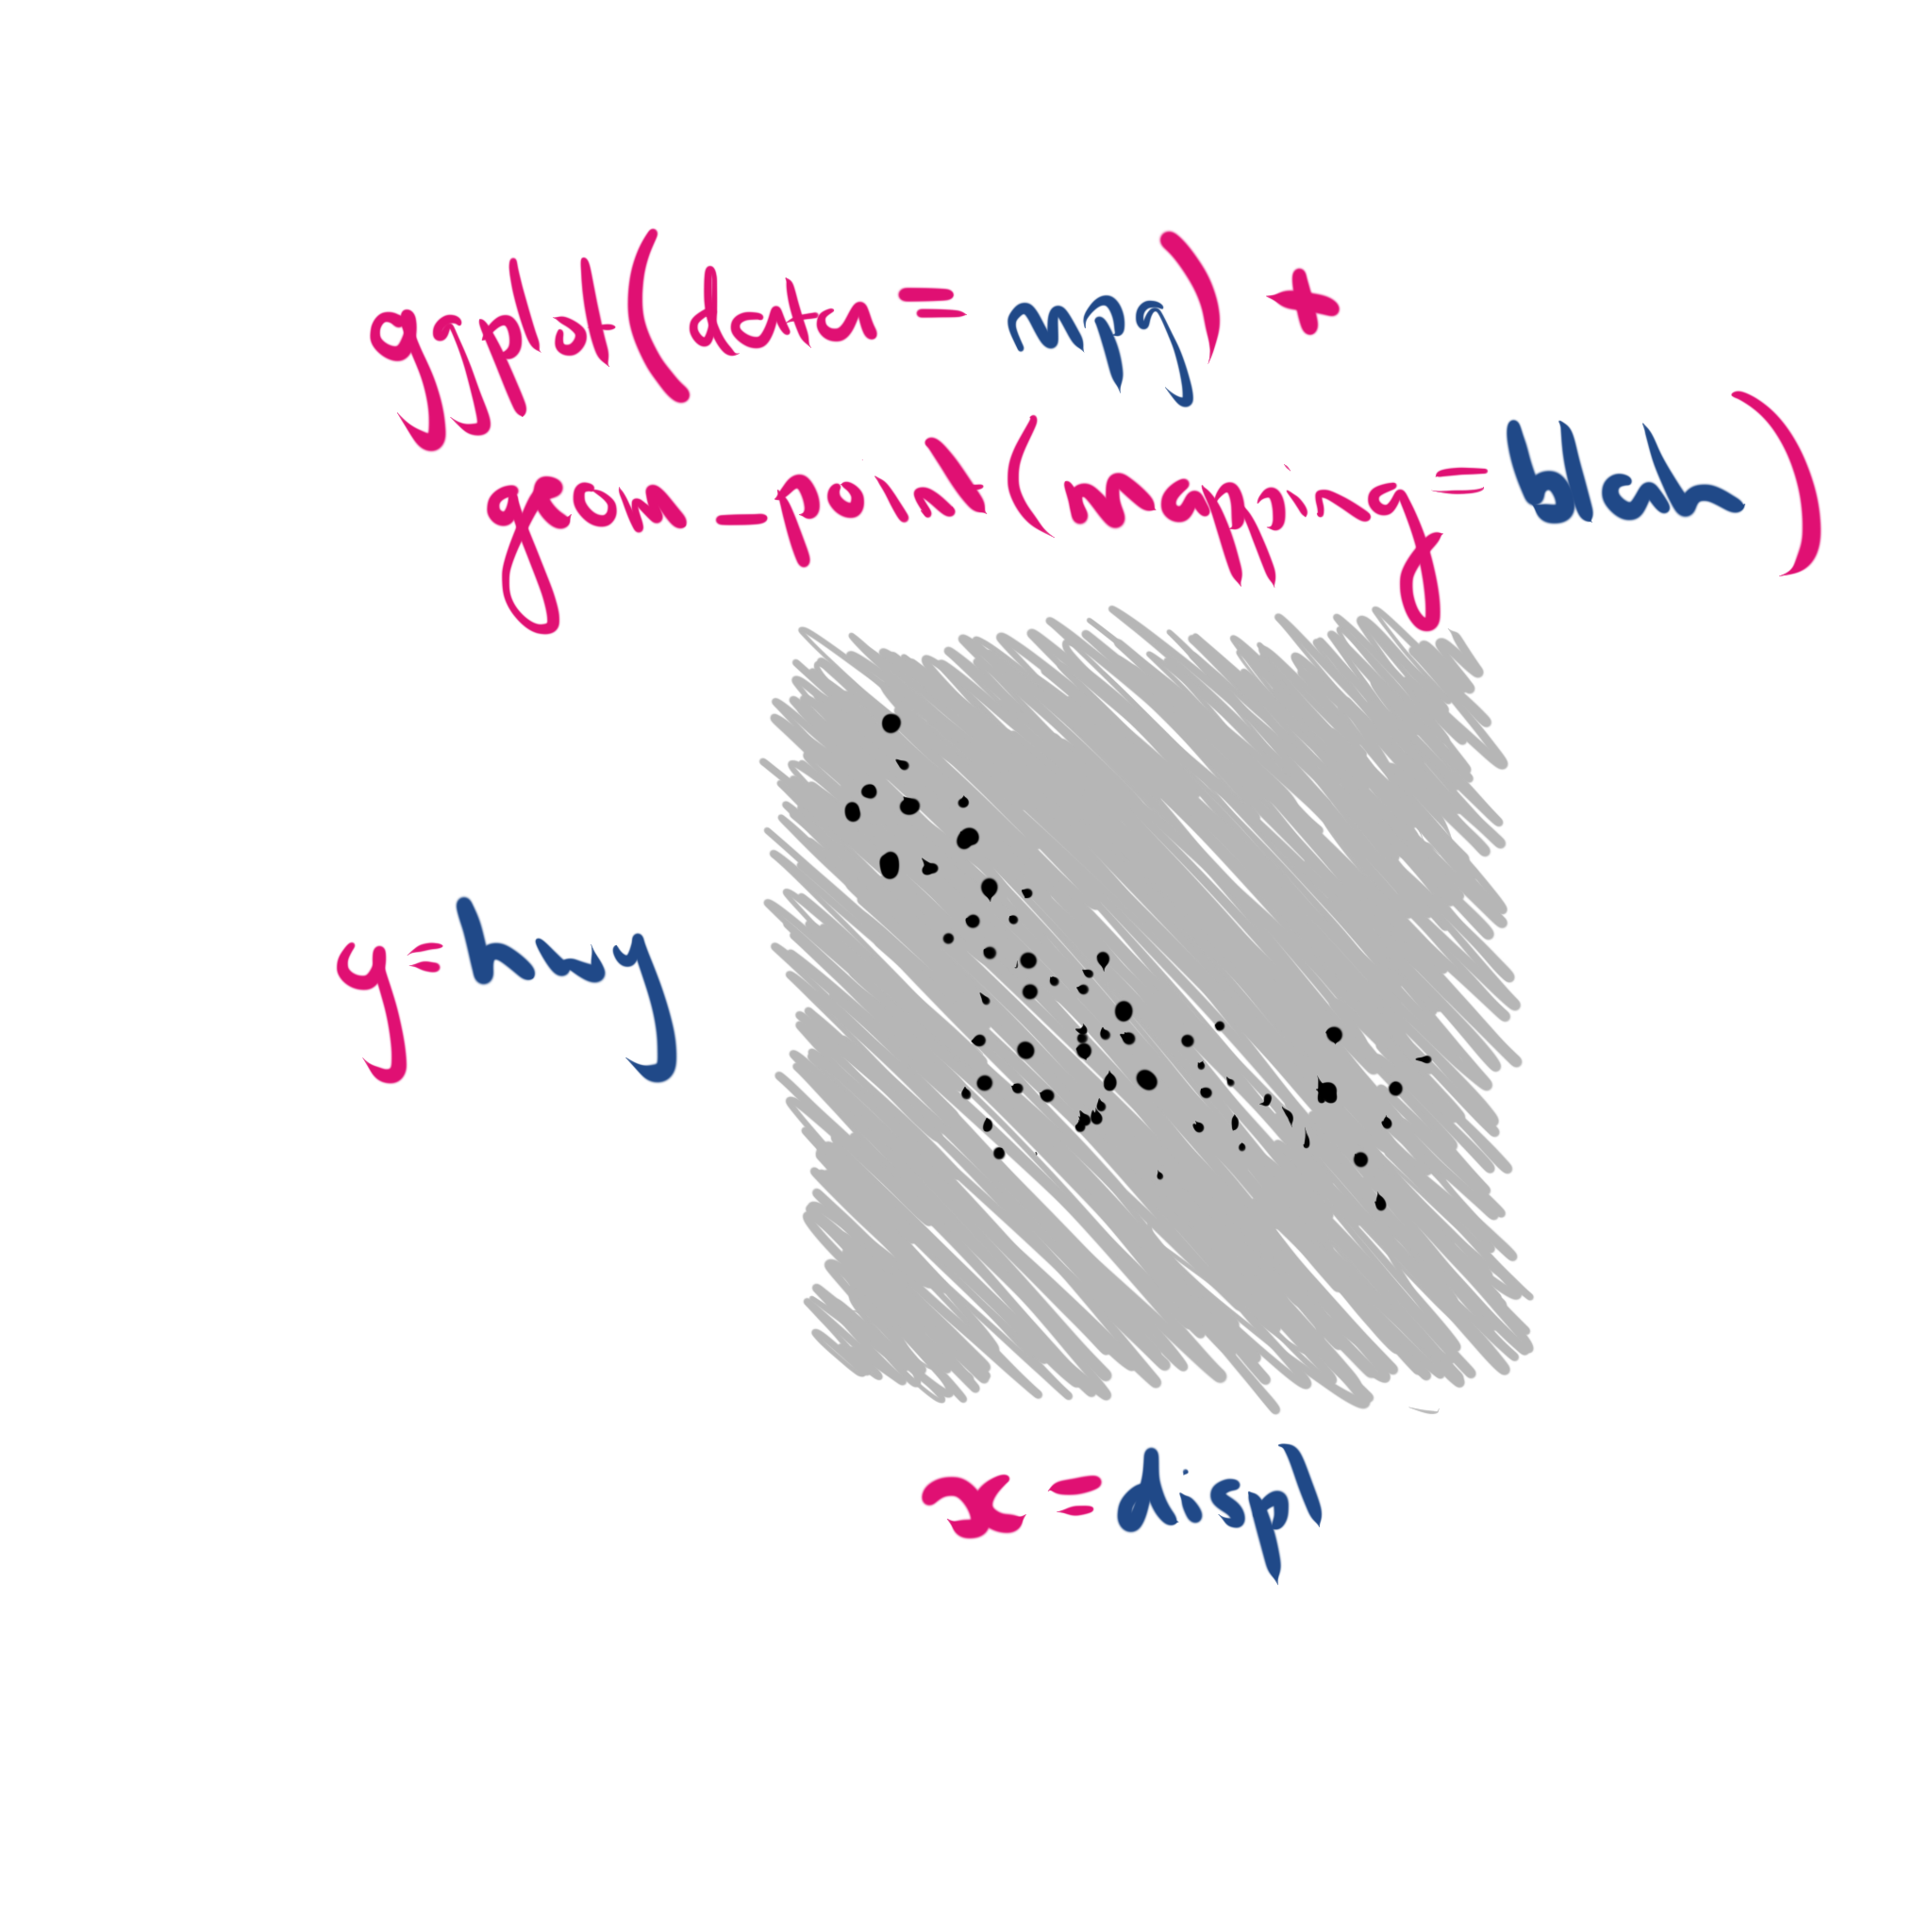 ggplot(data = mpg) +
geom_point(mapping = blah)
y = hwy
x = displ